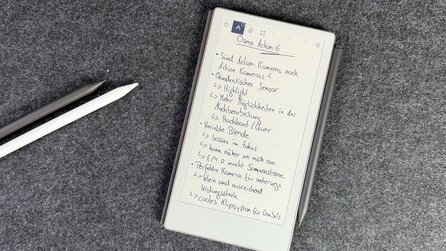 Osmo Action 6
• Sind Action-Kameras noch
Action Kameras?
• Quadratischer Sensor
↳ Highlight
↳ Mehr Möglichkeiten in der
Nachbearbeitung
↳ Hochkant / Quer
• Variable Blende
↳ besser im Fokus
↳ kann näher an mich ran
↳ f/4.0 macht Sonnensterne
• Perfekte Kamera für unterwegs
↳ klein und ausreichend
leistungsstark
↳ cooles Klipsystem für Gimbals